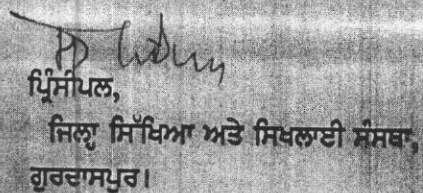 ਪ੍ਰਿੰਸੀਪਲ,
ਜਿਲ੍ਹਾ ਸਿੱਖਿਆ ਅਤੇ ਸਿਖਲਾਈ ਸੰਸਥਾ,
ਗੁਰਦਾਸਪੁਰ।